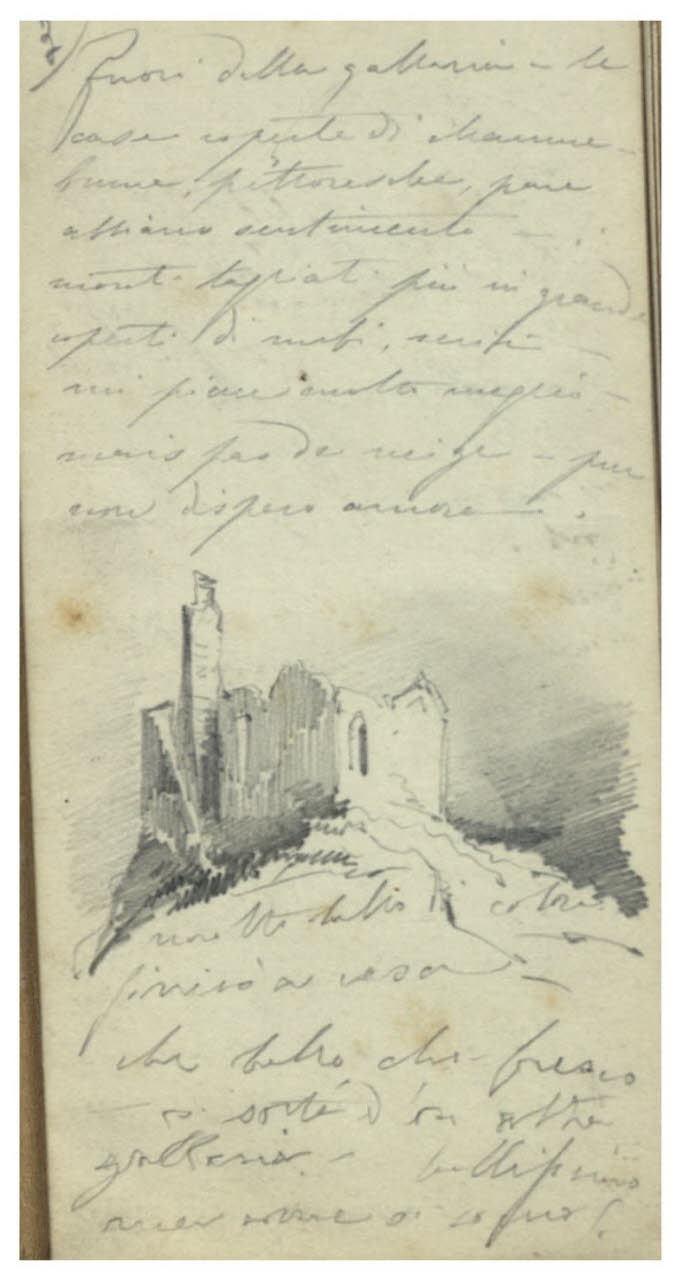 fuori della galleria – le
case coperte di chaume –
brune, pittoresche, pare
abbiano sentimento –
monti tagliati più in grande
coperti di nubi,
mi piace molto meglio –
mais pas de neige – pur
non dispero amore – .
di colore
finirò a casa –
che bello che fresco
si sorte d'un altra
galleria – bellissimo